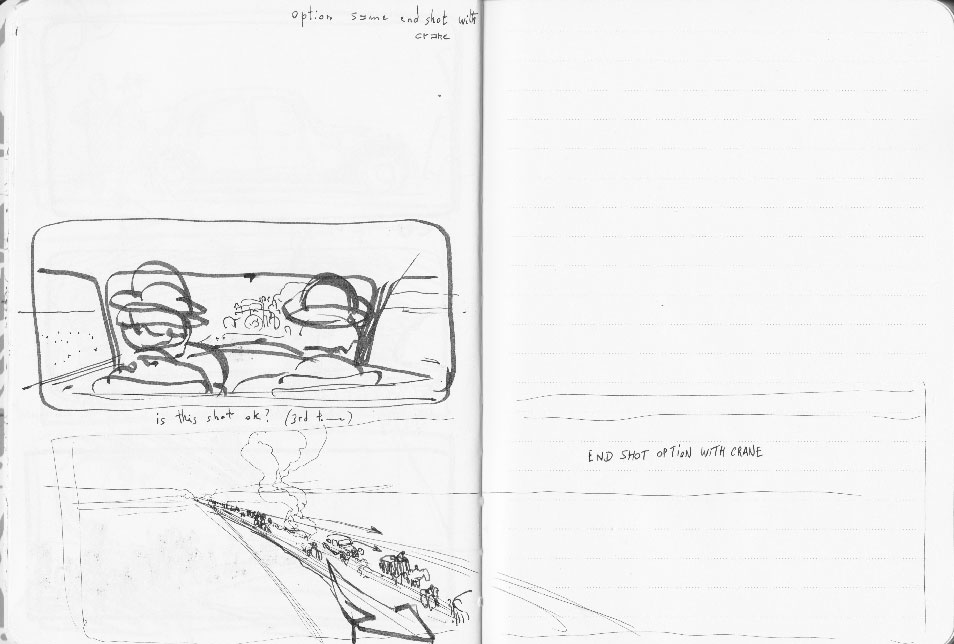 option same end shot with
crane
is this shot ok? (3rd
END SHOT OPTION WITH CRANE